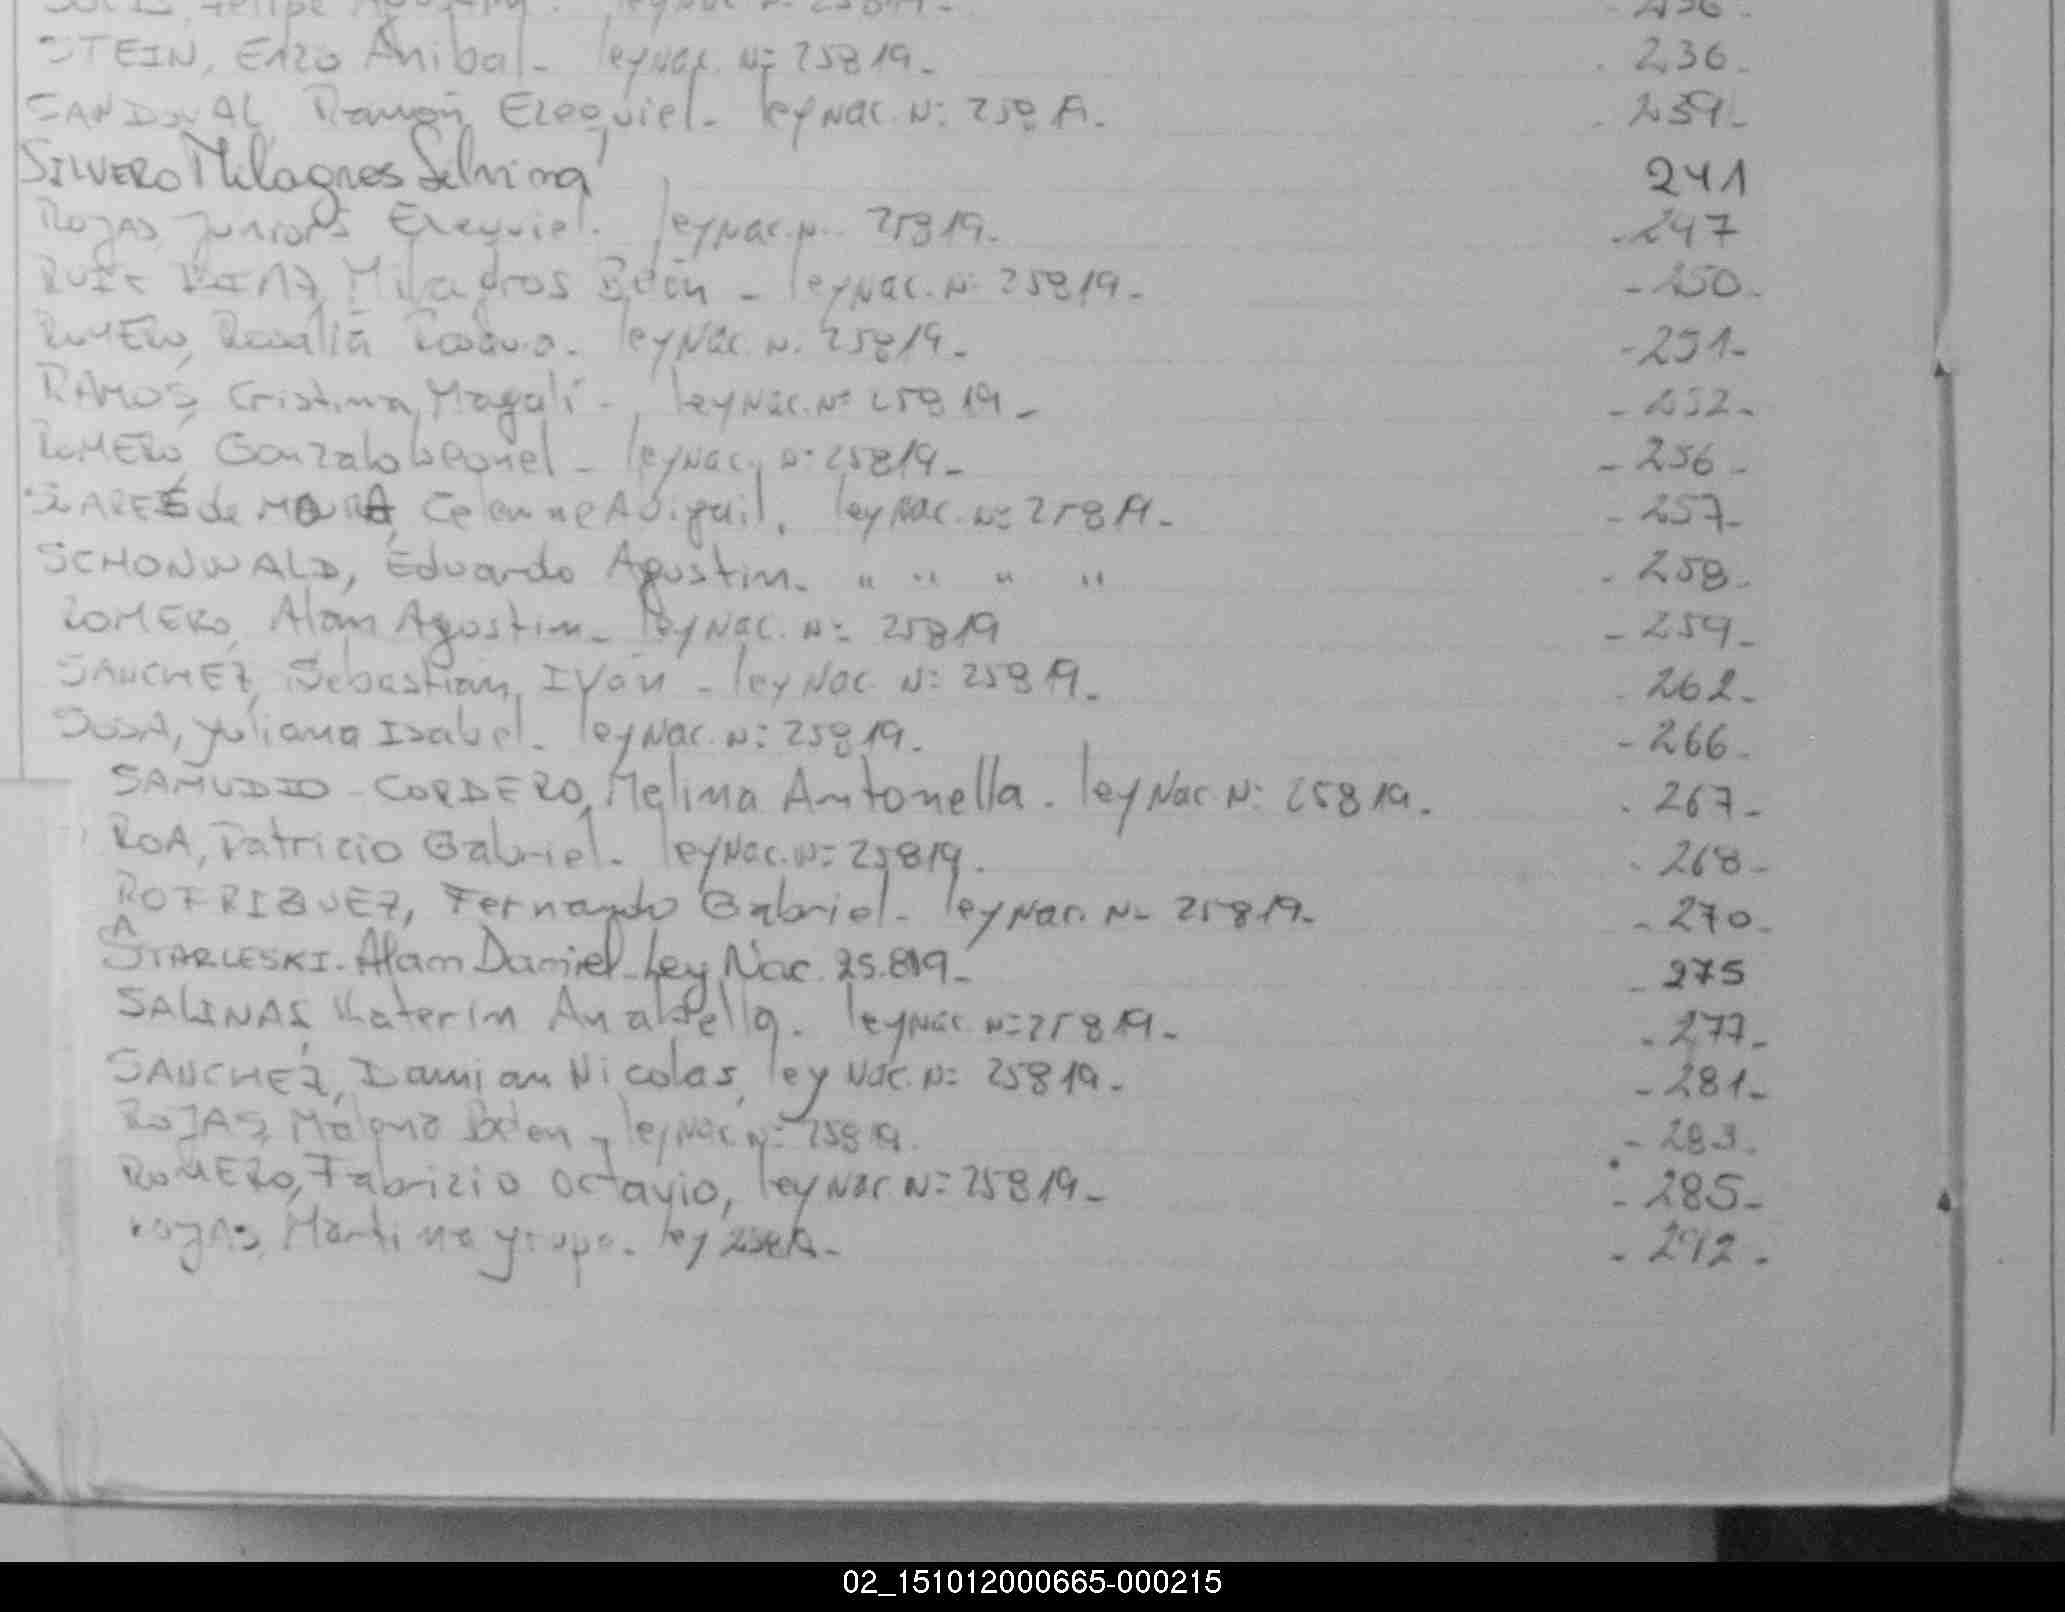 Felipe Ley Nac N: 25819. - 236.
STEIN, Enzo Anibal. Ley Nac. N: 25819. . 236.
SANDOVAL, Ramón Ezequiel. Ley Nac. N: 25819. . 239.
SILVERO Milagros Selmira 241
ROJAS, Juniors Ezequiel. Ley Nac. N.. 25819. - 247
RUIZ DIAZ, Milagros Belén - Ley Nac. N: 25819. - 250.
ROMERO, Rosalia. Ley Nac. N. 25819. - 251-
RAMOS, Cristina Magali - Ley Nac. N: 25819 - - 252-
ROMERO, Gonzalo Leonel - Ley Nac. N: 25819 - - 256 -
SUARES de MOURA, Celenne Abigail. Ley Nac. N: 25819 - - 257-
SCHONWALD, Eduardo Agustin. " " " " . 258.
ROMERO, Alan Agustin - Ley Nac. N: 25819 - 259 -
SANCHEZ, Sebastian, Iván - Ley Nac. N: 25819 - . 262 -
SOSA, Yuliana Isabel. Ley Nac. N: 25819. - 266.
SAMUDIO - CORDERO, Melina Antonella. Ley Nac. N: 25819. . 267 -
ROA, Patricio Gabriel. Ley Nac. N: 25819. . 268 -
RODRIGUEZ, Fernando Gabriel - Ley Nac. N - 25819. - 270 -
A
STARLESKI. Alam Daniel - Ley Nac. 25.819 - - 275
SALINAS, Katerin Anabella. Ley Nac. N: 25819 - - 277 -
SANCHEZ, Damian Nicolas, Ley Nac. N: 25819 - - 281 -
ROJAS, Malena Belen - Ley Nac. N: 25819. - 283.
ROMERO, Fabrizio Octavio, Ley Nac N: 25819 - - 285 -
ROJAS, Martina y grupo. Ley 25819 - - 292 -
02_151012000665-000215